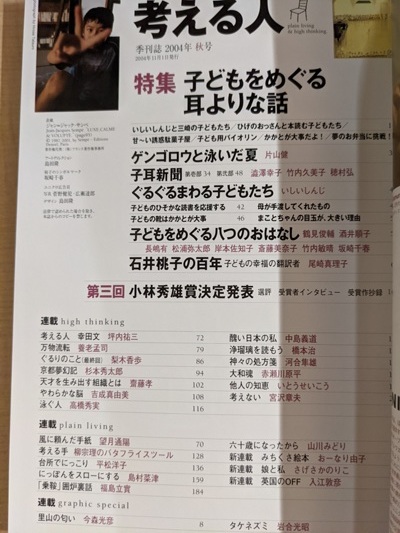 考える人
plain living
& high thinking
季刊誌 2004年 秋号
2004年11月1日発行
特集 子どもをめぐる
耳よりな話
いしいしんじと三崎の子どもたち/ひげのおっさんと本読む子どもたち/
甘〜い誘惑駄菓子屋/子ども用バイオリン/かかとが大事だよ!/夢のお弁当に挑戦!
ゲンゴロウと泳いだ夏 片山健
子耳新聞 第壱部 34 第弐部 48 澁澤幸子 竹内久美子 穂村弘
ぐるぐるまわる子どもたち いしいしんじ
子どものひそかな読書を応援する 42 母が手渡してくれたもの
子どもの靴はかかとが大事 46 まことちゃんの目玉が、大きい理由
子どもをめぐる八つのおはなし 鶴見俊輔 酒井順子
長嶋有 松浦弥太郎 岸本佐知子 斎藤美奈子 竹内敏晴 坂崎千春
石井桃子の百年 子どもの幸福の翻訳者 尾崎真理子
第三回 小林秀雄賞決定発表 選評 受賞者インタビュー 受賞作抄録
連載 high thinking
考える人 幸田文 坪内祐三 72
万物流転 養老孟司 79
ぐるりのこと[最終回] 梨木香歩 86
京都夢幻記 杉本秀太郎 94
天才を生み出す組織とは 齋藤孝 102
やわらかな脳 吉成真由美 108
泳ぐ人 高橋秀実 116
醜い日本の私 中島義道
浄瑠璃を読もう 橋本治
神々の処方箋 河合隼雄
大和魂 赤瀬川原平
他人の知恵 いとうせいこう
考えない 宮沢章夫
連載 plain living
風に頼んだ手紙 望月通陽 70
考える手 柳宗理のバタフライスツール 128
台所でにっこり 平松洋子 136
にっぽんをスローにする 島村菜津 139
「乗鞍」囲炉裏話 福島立實 184
六十歳になったから 山川みどり
新連載 みちくさ絵本 おーなり由子
新連載 娘と私 さげさかのりこ
新連載 英国のOFF 入江敦彦
連載 graphic special
里山の匂い 今森光彦 8
タケネズミ 岩合光昭